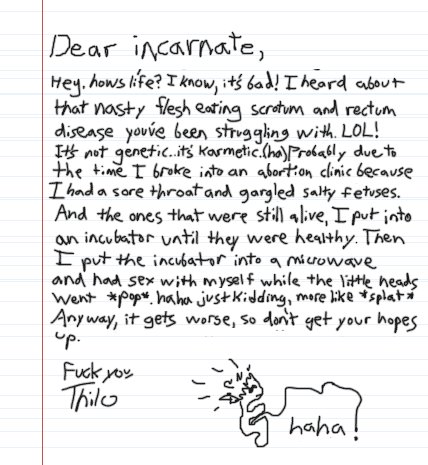 Dear incarnate,
Hey, hows life? I know, it's bad! I heard about
that nasty flesh eating scrotum and rectum
disease you've been struggling with. LOL!
It's not genetic..it's Karmetic.(ha) Probably due to
the time I broke into an abortion clinic because
I had a sore throat and gargled salty fetuses.
And the ones that were still alive, I put into
an incubator until they were healthy. Then
I put the incubator into a microwave
and had sex with myself while the little heads
went *pop*. haha just kidding, more like *splat*
Anyway, it gets worse, so don't get your hopes
up.
Fuck you
Thilo
haha!